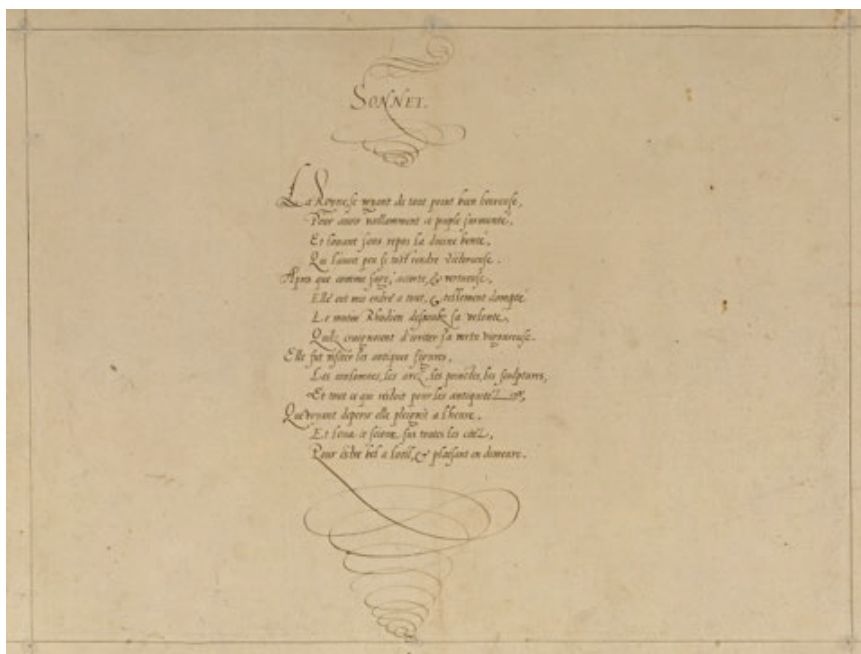 SONNET.
La Royne se voyant de tout point bien heureuse,
Pour avoir vaillamment ce peuple surmonté,
Et louant sans repos la divine bonté,
Qui l'avoit peu si tost rendre victorieuse.
Apres que comme sage, accorte, & vertueuse,
Elle eut mis ordre a tout, & tellement dompté
Le mutin Rhodien dessoubz sa volonté,
Quilz craignoient d'irriter sa vertu vigoureuse.
Elle fut visiter les antiques figures,
Les colomnes, les arcz, les poinctes, les sculptures,
Et tout ce qui reluit pour les antiquitez
Que voyant deperir elle pleignit a l'heure,
Et loua ce sur toutes les citéz,
Pour estre bel a l'oeil, & plaisant en demeure.